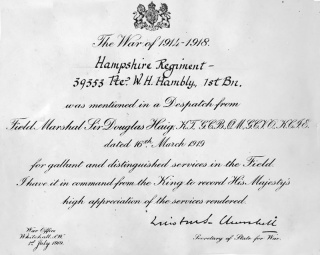 The War of 1914-1918.
Hampshire Regiment -
39553 Pte. W. H. Hambly, 1st Bn.
was mentioned in a Despatch from
Field Marshal Sir Douglas Haig, K.T. G.C.B. O.M. G.C.V.O. K.C.I.E.
dated 16th March 1919
for gallant and distinguished services in the Field.
I have it in command from the King to record His Majesty's
high appreciation of the services rendered.
Winston S. Churchill
War Office
Whitehall, S.W.
1st July 1919.
Secretary of State for War.